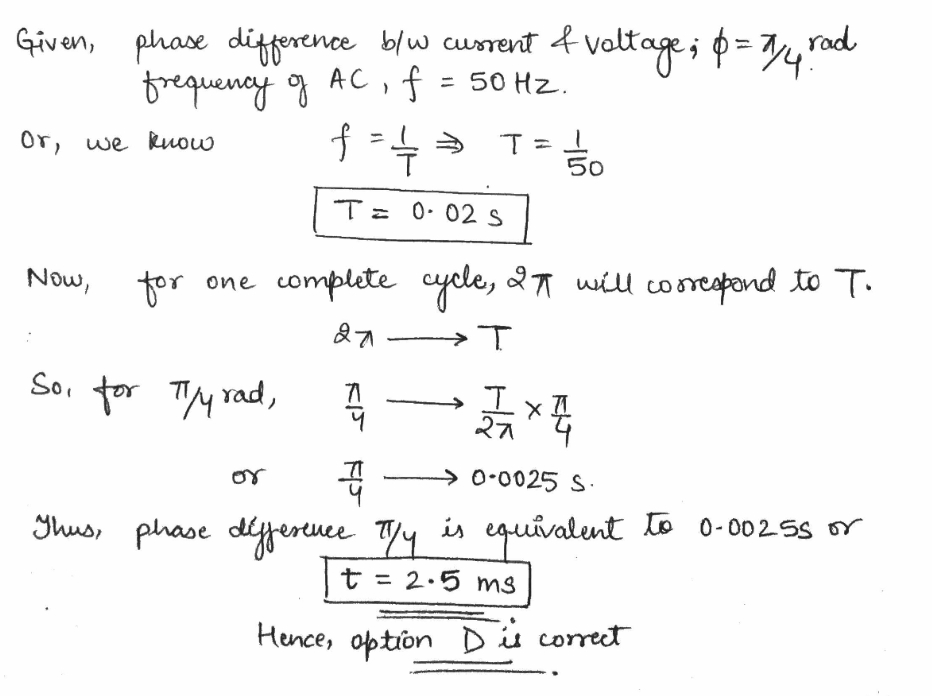 Given, phase difference b/w current & voltage; ϕ = π/4 rad
frequency of AC, f = 50 Hz.
Or, we know f = 1/T ⇒ T = 1/50
T = 0.02 s
Now, for one complete cycle, 2π will correspond to T.
2π ⟶ T
So, for π/4 rad, π/4 ⟶ T/2π × π/4
or π/4 ⟶ 0.0025 s.
Thus, phase difference π/4 is equivalent to 0.0025s or
t = 2.5 ms
Hence, option D is correct.